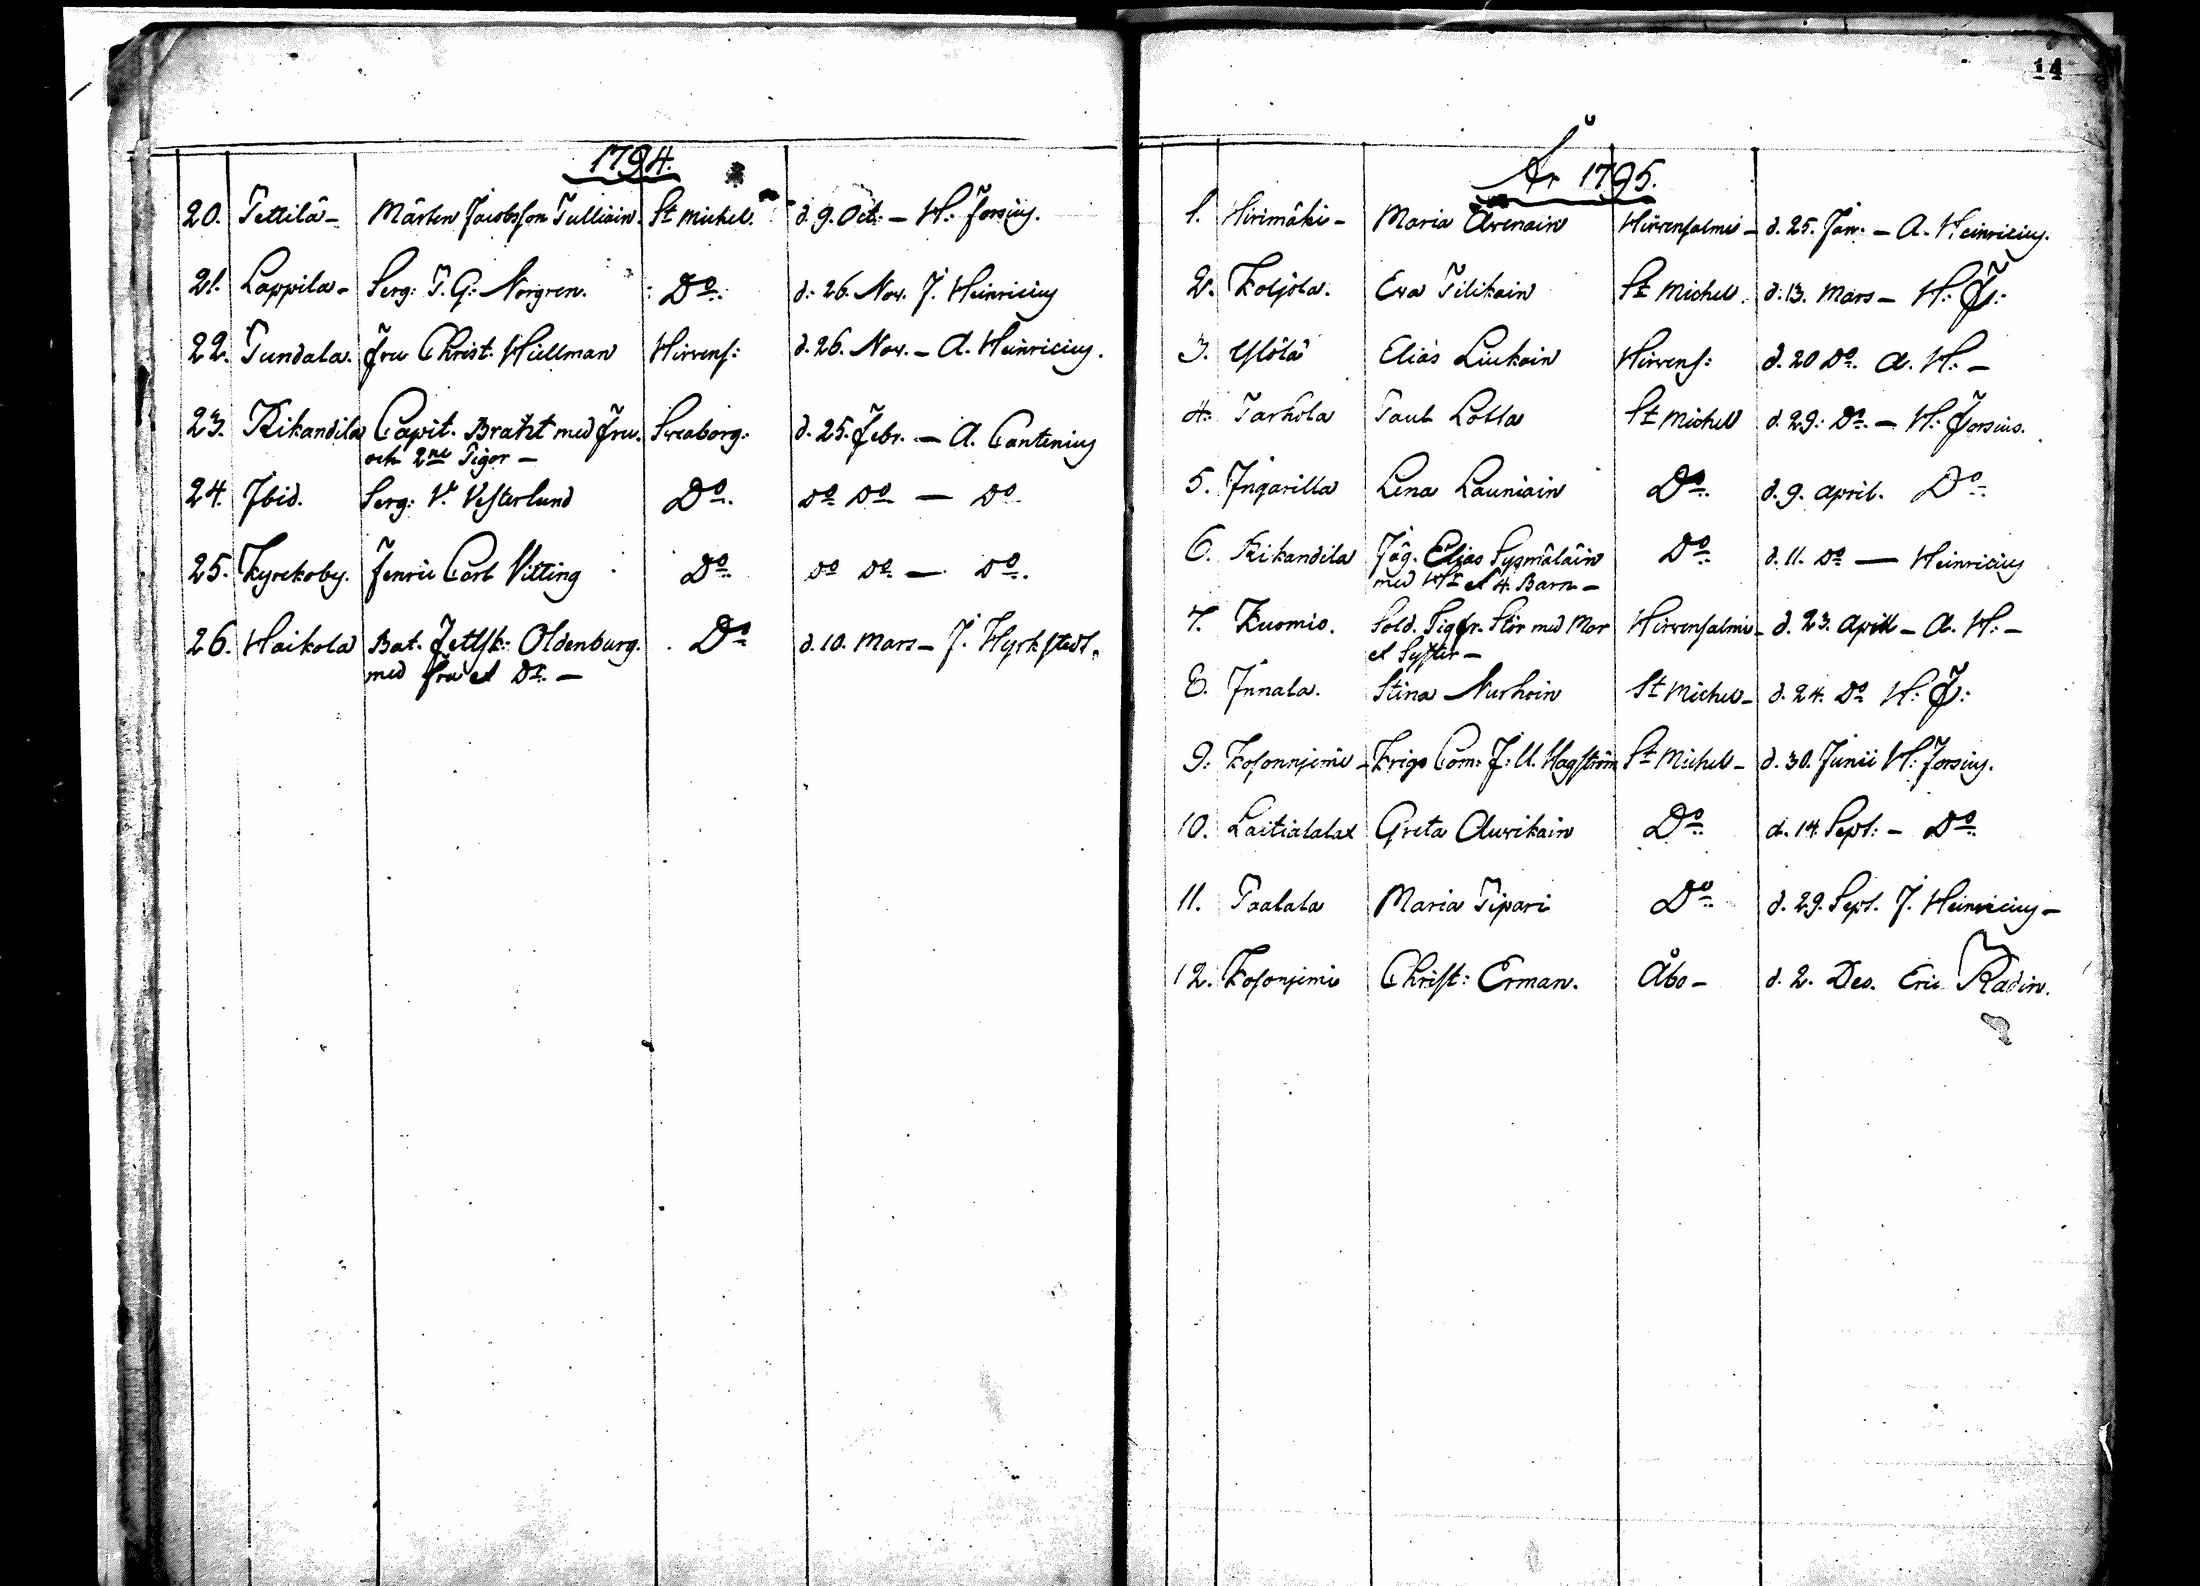 14
1794.
20. Pettilä - Mårten Jacobsson Pulliain - St Michel. d. 9. Oct. - H: Forsius.
21. Lappila - Serg: P. G: Norgren. Do: d: 26. Nov. J. Heinricius
22. Pundala. Fru Christ. Hüllman Hirvens: d. 26. Nov. - A. Heinricius.
23. Rikandila Capit. Braht med Fru. Sveaborg: d. 25. Febr. - A. Cantenius
och 2ne Pigor -
24. Ibid. Serg: V. Vesterlund Do. Do Do - Do
25. Kyrckoby. Fenric Carl Vitting Do. Do Do - Do.
26. Haikola Bat. Feltsk: Oldenburg. Do d. 10. Mars - J. Hyrkstedt.
med Fru et Dr. -
År 1795.
1. Hirimäki - Maria Avenain Hirvensalmi - d. 25. Jan: - A. Heinricius.
2. Koljola. Eva Pilikain St Michel. d. 13. Mars - H: F:
3. Ylölä Elias Liukain Hirvens: d. 20 Do. A. H: -
4. Parhola Paul Lotta St Michel d. 29: Do. - H: Forsius.
5. Ingarilla Lena Launiain Do. d. 9. April. Do.
6. Rikandila Jäg. Elias Sysmäläin Do. d. 11. Do - Heinricius
med Hr et 4. Barn -
7. Kuomio. Sold. Sigfr. Stör med Mor Hirvensalmi - d. 23. Aprill - A. H: -
et Syster -
8. Innala. Stina Nurhoin St Michel - d. 24. Do H: F:
9. Kosonnjemi - Krigs Com: J: U. Hagström St Michel - d. 30. Junii H: Forsius.
10. Laitialalax Greta Auvikain Do. d. 14. Sept: - Do.
11. Paalala Maria Pipari Do. d. 29. Sept. J. Heinricius -
12. Kosonjemi Christ: Erman. Åbo - d. 2. Dec. Eric Radin.